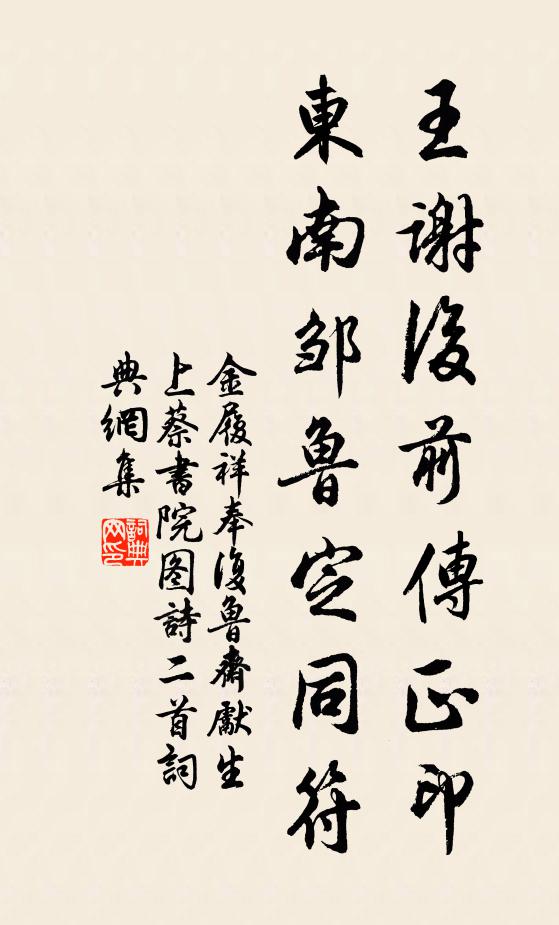 王謝後前傳正印
東南邹魯定同符
金履祥奉復魯齋獻生
上蔡書院图詩二首詞
典網集
詞典网印